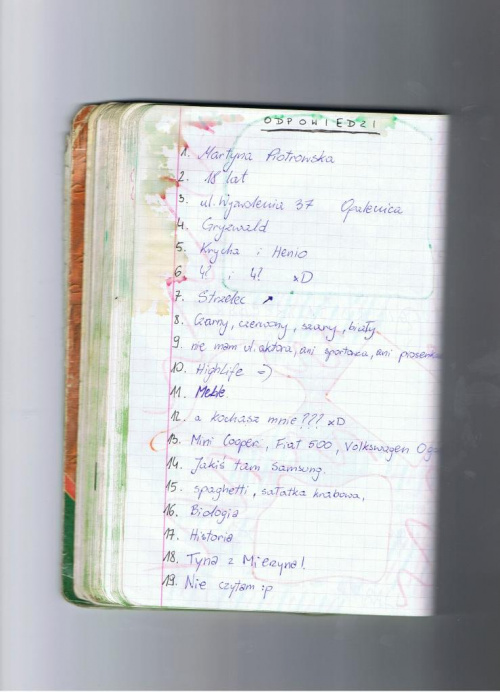 ODPOWIEDZI
1. Martyna Piotrowska
2. 18 lat
3. ul. Wyzwolenia 37 Opalenica
4. Grynwald
5. Krycha i Henio
6. 4! i 4! xD
7. Strzelec ↗
8. Czarny, czerwony, szary, biały
9. nie mam ul. aktora, ani sportowca, ani
10. HighLife =)
11. Meble
12. a kochasz mnie??? xD
13. Mini Cooper, Fiat 500, Volkswagen
14. Jakiś tam Samsung.
15. spaghetti, sałatka krabowa,
16. Biologia
17. Historia
18. Tyna z Mierzyna!
19. Nie czytam :p